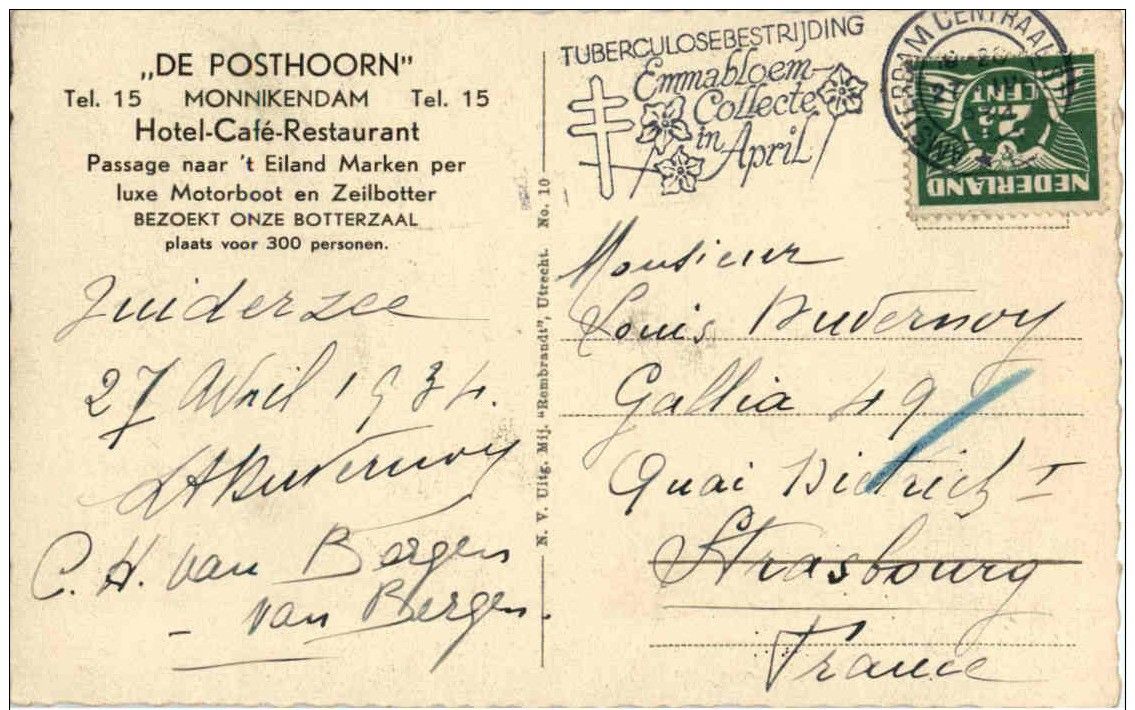 „DE POSTHOORN"
Tel. 15 MONNIKENDAM Tel. 15
Hotel-Café-Restaurant
Passage naar 't Eiland Marken per
luxe Motorboot en Zeilbotter
BEZOEKT ONZE BOTTERZAAL
plaats voor 300 personen.
Zuiderzee
27 Avril 1934.
Duvernoy
C. H. van Bergen
- van Bergen.
N. V. Uitg. Mij. "Rembrandt", Utrecht. No. 10
TUBERCULOSEBESTRIJDING
Emmabloem-
Collecte
in
April
AMSTERDAM CENTRAAL
CENT
NEDERLAND
Monsieur
Louis Duvernoy
Gallia 49
Quai Dietrich I
Strasbourg
France